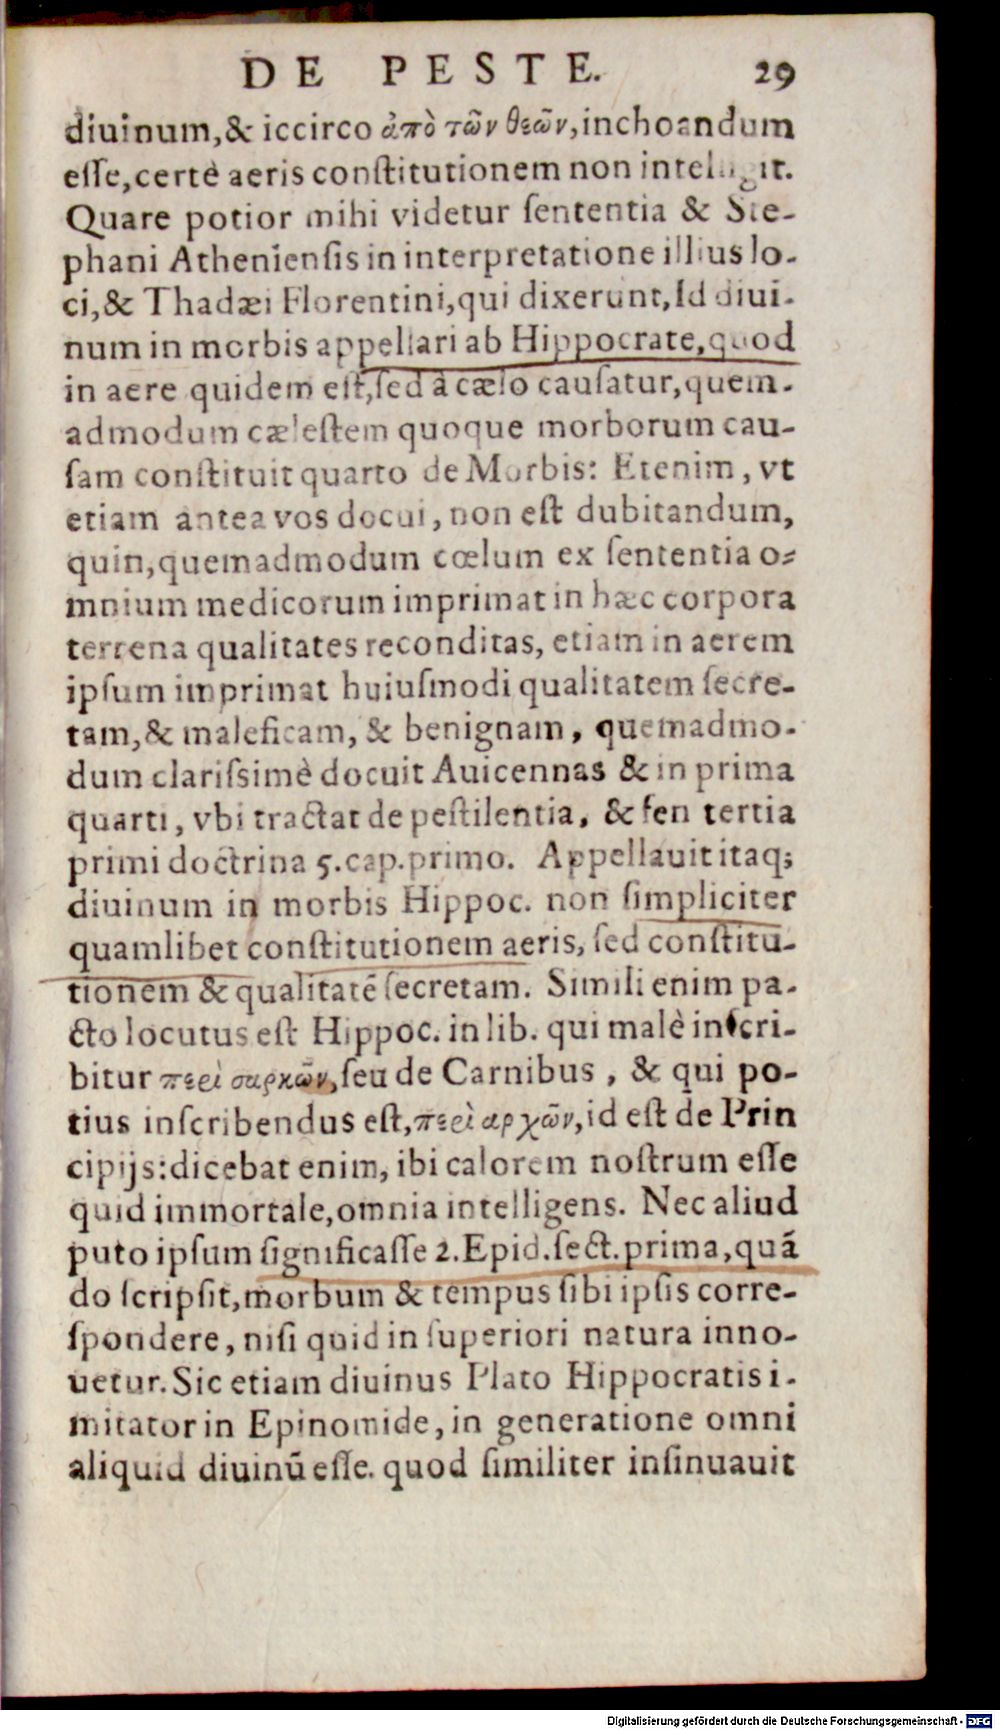 DE PESTE. 29
diuinum,& iccirco ἀπὸ τῶν θεῶν,inchoandum
eſſe,certè aeris conſtitutionem non intelligit.
Quare potior mihi videtur ſententia & Ste-
phani Athenienſis in interpretatione illius lo-
ci,& Thadæi Florentini,qui dixerunt,Id diui-
num in morbis appellari ab Hippocrate,quod
in aere quidem eſt,ſed à cælo cauſatur,quem-
admodum cæleſtem quoque morborum cau-
ſam conſtituit quarto de Morbis: Etenim, vt
etiam antea vos docui, non eſt dubitandum,
quin,quemadmodum cœlum ex ſententia o-
mnium medicorum imprimat in hæc corpora
terrena qualitates reconditas, etiam in aerem
ipſum imprimat huiuſmodi qualitatem ſecre-
tam,& maleficam, & benignam, quemadmo-
dum clariſsimè docuit Auicennas & in prima
quarti, vbi tractat de peſtilentia, & fen tertia
primi doctrina 5.cap.primo. Appellauit itaq;
diuinum in morbis Hippoc. non ſimpliciter
quamlibet conſtitutionem aeris, ſed conſtitu-
tionem & qualitatē ſecretam. Simili enim pa-
cto locutus eſt Hippoc. in lib. qui malè inſcri-
bitur περὶ σαρκῶν,ſeu de Carnibus, & qui po-
tius inſcribendus eſt,περὶ αρχῶν,id eſt de Prin
cipijs:dicebat enim, ibi calorem noſtrum eſſe
quid immortale,omnia intelligens. Nec aliud
puto ipſum ſignificaſſe 2.Epid.ſect.prima,quā
do ſcripſit,morbum & tempus ſibi ipſis corre-
ſpondere, niſi quid in ſuperiori natura inno-
uetur. Sic etiam diuinus Plato Hippocratis i-
mitator in Epinomide, in generatione omni
aliquid diuinū eſſe. quod ſimiliter inſinuauit
Digitalisierung gefördert durch die Deutsche Forschungsgemeinschaft - DFG